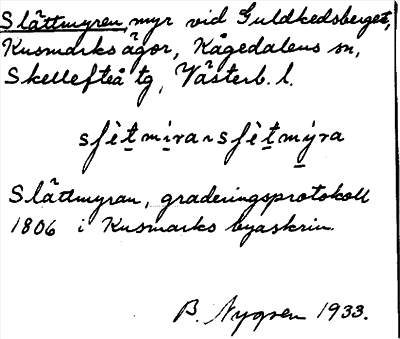 Slåttmyren, myr vid Guldkedsberget,
Kusmarks ägor, Kågedalens sn,
Skellefteå tg, Västerb. l.
Slåttmyran, graderingsprotokoll
1806 i Kusmarks byaskrin.
B. Nygren 1933.